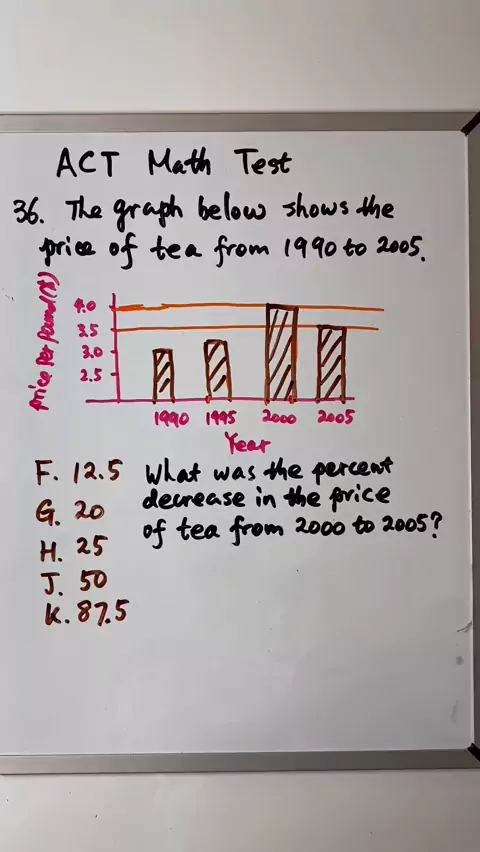 ACT Math Test
36. The graph below shows the
price of tea from 1990 to 2005.
Price Per Pound($)
4.0
3.5
3.0
2.5
1990 1995 2000 2005
Year
F. 12.5
G. 20
H. 25
J. 50
K. 87.5
What was the percent
decrease in the price
of tea from 2000 to 2005?